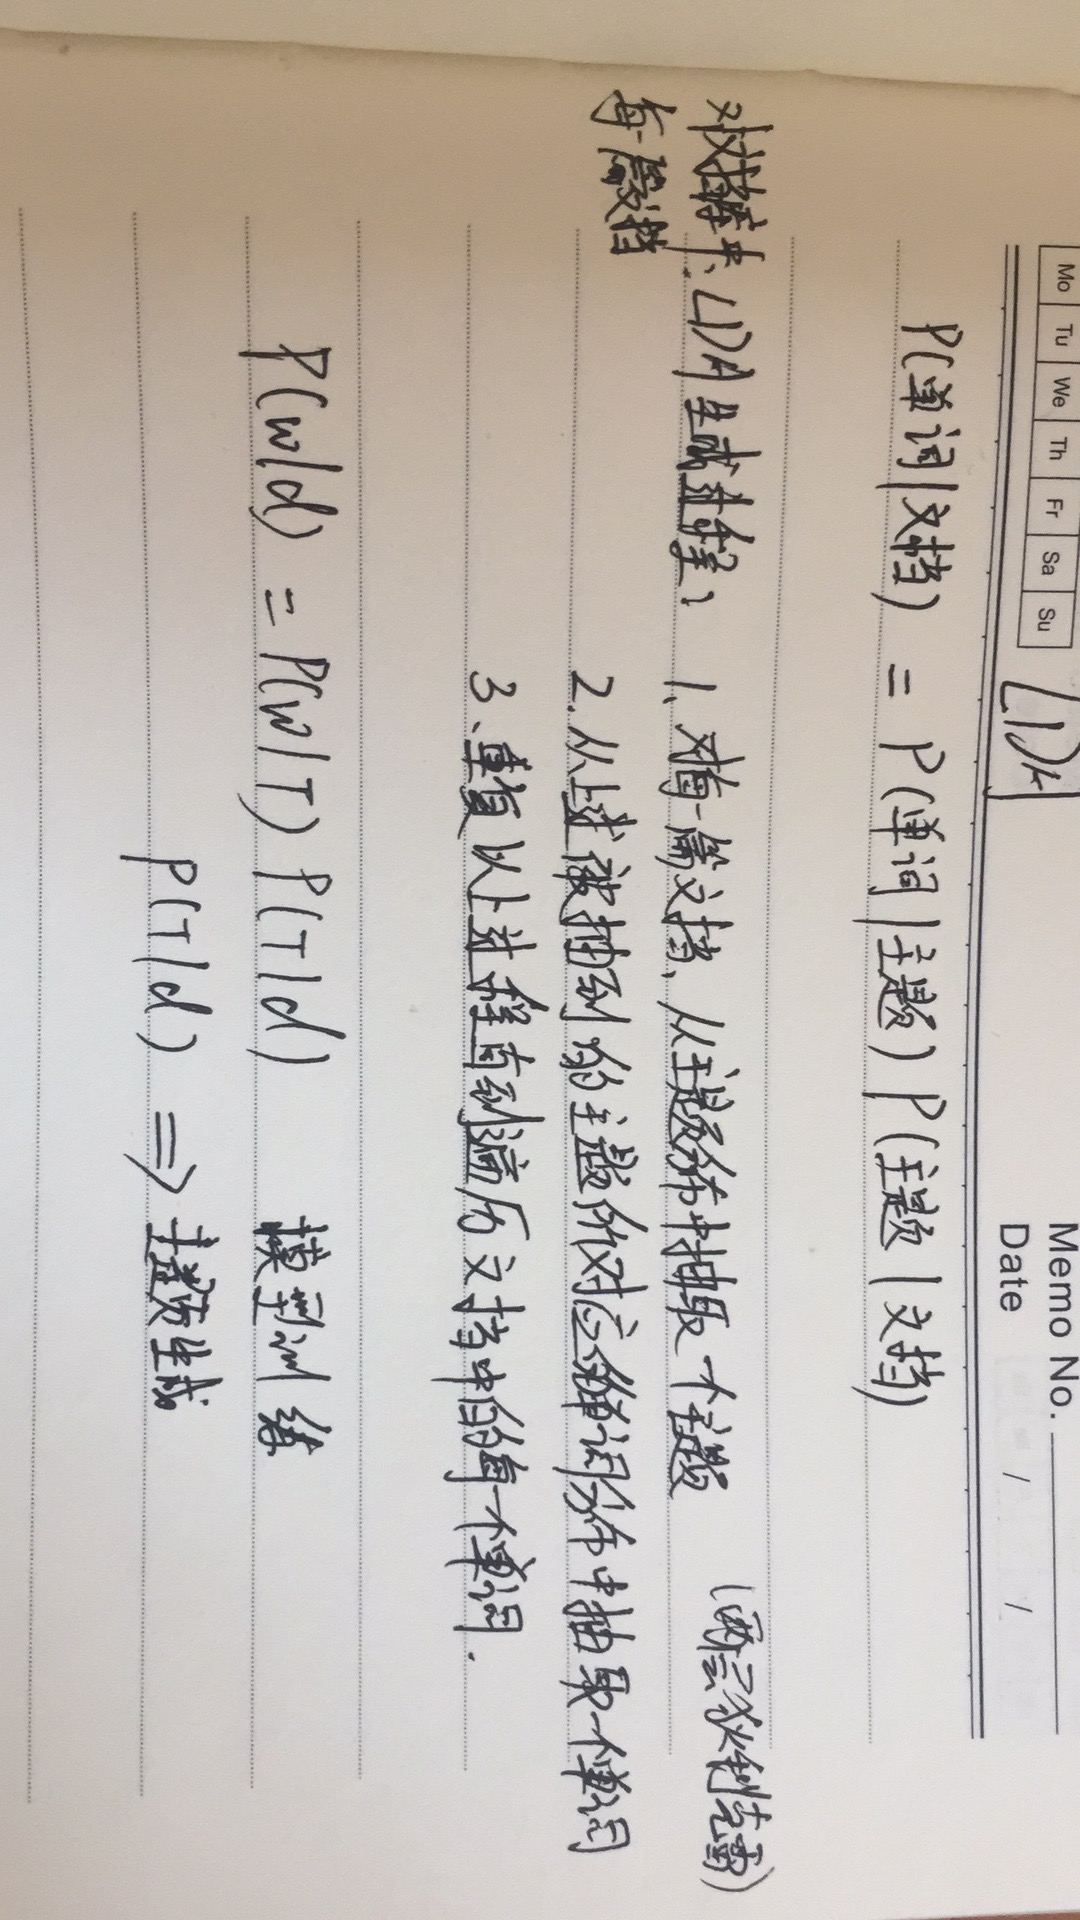 Mo Tu We Th Fr Sa Su
Memo No.
Date / /
LDA
P(单词|文档) = P(单词|主题) P(主题|文档)
(两层狄利克雷)
对文档库中、LDA生成过程: 1、对每一篇文档、从主题分布中抽取一个主题
每一篇文档
2. 从上述被抽到的主题所对应的单词分布中抽取一个单词
3、重复以上过程直到遍历文档中的每一个单词.
P(w|d) = P(w|T) P(T|d) 模型训练
P(T|d) ⇒ 主题生成